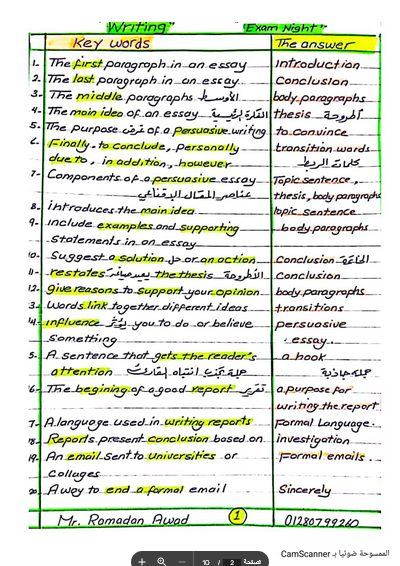 Writing "Exam Night"
Key words The answer
1- The first paragraph in an essay Introduction
2- The last paragraph in an essay. Conclusion
3- The middle paragraphs الأوسط body paragraphs
4- The main idea of an essay الفكرة الرئيسية thesis الأطروحة
5- The purpose of a persuasive writing to convince
6- Finally, to conclude, personally transition words
due to, in addition, however كلمات الربط
7- Components of a persuasive essay Topic sentence,
عناصر المقال الإقناعي thesis, body paragraphs
8- introduces the main idea topic sentence
9- include examples and supporting body paragraphs
statements in an essay
10- Suggest a solution حل or an action Conclusion الخاتمة
11- restates the thesis الأطروحة Conclusion
12- give reasons to support your opinion body paragraphs
3- Words link together different ideas transitions
4- influence يؤثر you to do or believe persuasive
something essay.
5- A sentence that gets the reader's a hook
attention جملة تجذب انتباه جملة جاذبة
6- The begining of a good report تقرير a purpose for
writing the report
7- A language used in writing reports Formal Language.
18- Reports present conclusion based on investigation
19- An email sent to universities or Formal emails.
collages
20- A way to end a formal email Sincerely
Mr. Ramadan Awad 1 01280799260
الممسوحة ضوئيا بـ CamScanner
صفحة 2 / 10